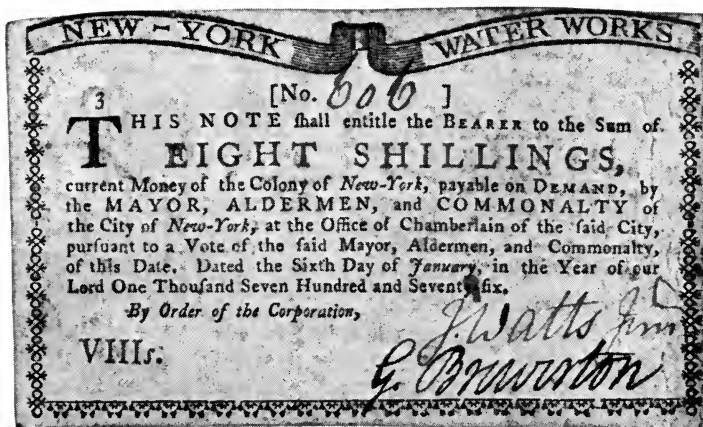 NEW-YORK WATER WORKS
[No. 606 ]
3
THIS NOTE ſhall entitle the BEARER to the Sum of
EIGHT SHILLINGS,
current Money of the Colony of New-York, payable on DEMAND, by
the MAYOR, ALDERMEN, and COMMONALTY of
the City of New-York, at the Office of Chamberlain of the ſaid City,
purſuant to a Vote of the ſaid Mayor, Aldermen, and Commonalty,
of this Date. Dated the Sixth Day of January, in the Year of our
Lord One Thouſand Seven Hundred and Seventy ſix.
By Order of the Corporation,
J. Watts Jun
VIIIs.
G. Brewerton